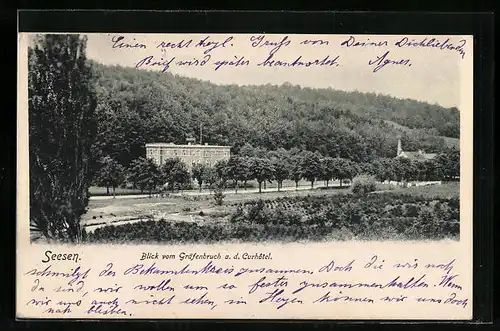 Einen recht herzl. Gruss von Deiner Dichliebenden
Brief wird später beantwortet. Agnes.
Seesen. Blick vom Gräfenbruch a. d. Curhôtel.
schmilzt der Bekanntenkreis zusammen. Doch die wir noch
da sind, wir wollen um so fester zusammenhalten. Wenn
wir uns auch nicht sehen, im Herzen können wir uns doch
nah bleiben.